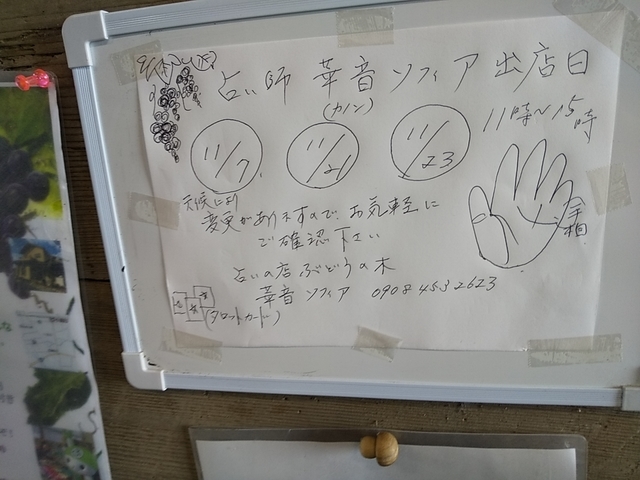 占い師 華音 ソフィア 出店日
(カノン)
11時〜15時
11/7
11/21
11/23
天候により
変更がありますので、お気軽に
ご確認下さい
手相
占いの店 ぶどうの木
華音 ソフィア 0908 453 2623
(タロットカード)